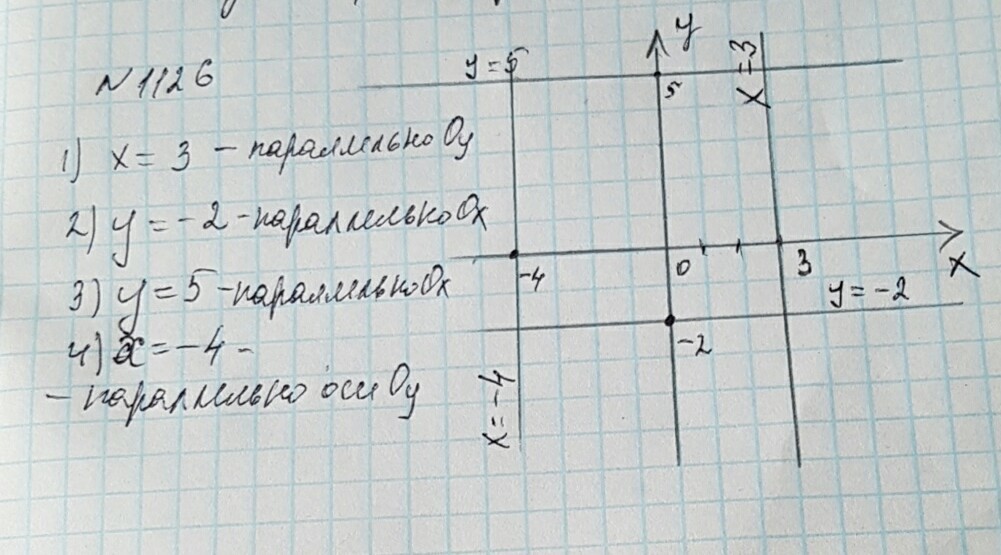 N 1126
1) x = 3 - параллельно Oy
2) y = -2 - параллельно Ox
3) y = 5 - параллельно Ox
4) x = -4 -
- параллельно оси Oy
y = 5
y
x = 3
5
-4
0
3
x
y = -2
-2
x = -4